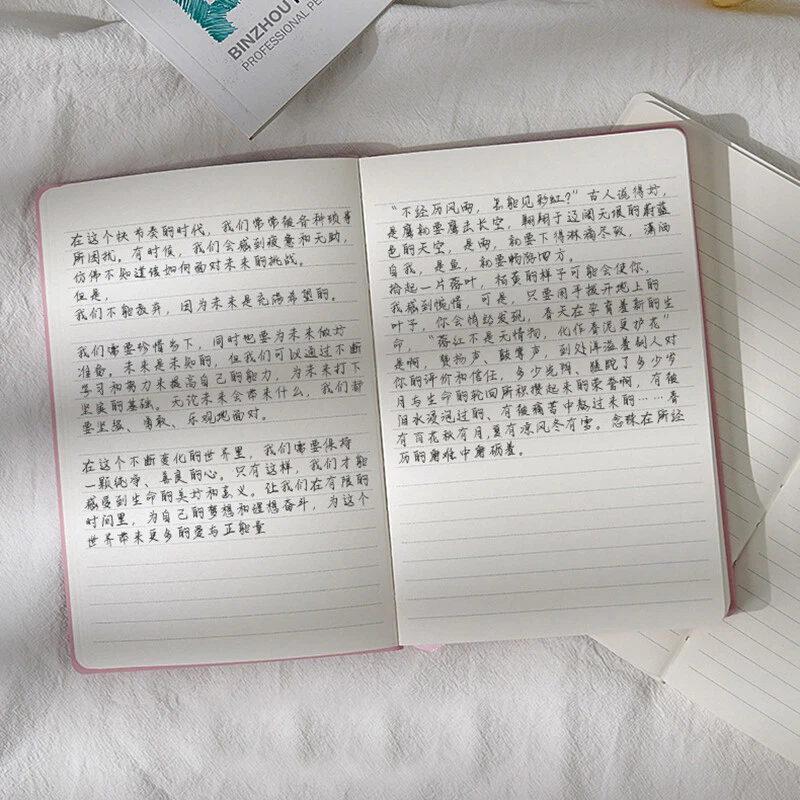 BINZHOU
PROFESSIONAL PE
在这个快节奏的时代，我们常常被各种琐事
所困扰。有时候，我们会感到疲惫和无助，
仿佛不知道该如何面对未来的挑战。
但是，
我们不能放弃，因为未来是充满希望的。
我们需要珍惜当下，同时也要为未来做好
准备。未来是未知的，但我们可以通过不断
学习和努力来提高自己的能力，为未来打下
坚实的基础。无论未来会带来什么，我们都
要坚强、勇敢、乐观地面对。
在这个不断变化的世界里，我们需要保持
一颗纯净、善良的心。只有这样，我们才能
感受到生命的美好和意义。让我们在有限的
时间里，为自己的梦想和理想奋斗，为这个
世界带来更多的爱与正能量
“不经历风雨，怎能见彩虹？”古人说得好，
是鹰就要鹰击长空，翱翔于辽阔无垠的蔚蓝
色的天空，是雨，就要下得淋漓尽致，潇洒
自我，是鱼，就要畅游四方。
拾起一片落叶，枯黄的样子可能会使你，
我感到惋惜，可是，只要用手拨开地上的
叶子，你会悄却发现，春天在孕育着新的生
命，“落红不是无情物，化作春泥更护花”
是啊，赞扬声、鼓掌声，到处洋溢着别人对
你的评价和信任，多少光阴、蹉跎了多少岁
月与生命的轮回所积攒起来的荣誉啊，有被
泪水浸泡过的、有被痛苦中熬过来的……春
有百花秋有月，夏有凉风冬有雪。念珠在所经
历的磨难中磨砺着。